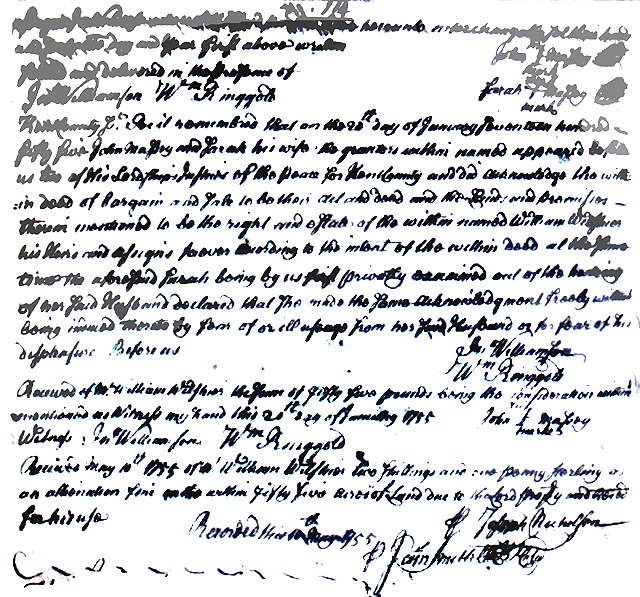 hereunto interchangeably set their hand
and day and year first above written
and delivered in the presence of
John Massey
mark
Jn. Williamson Wm Ringgold
Sarah Massey
mark
Kent County Ss. Be it remembered that on the 20th day of January Seventeen hundred
fifty five John Massey and Sarah his wife the grantors within named appeared before
us two of His Lordships Justices of the peace for Kent County and did acknowledge the with-
in deed of bargain and Sale to be their act and deed and the Land and premises
therein mentioned to be the right and estate of the within named William Wilshier
his Heirs and assigns forever according to the intent of the within deed at the same
time the aforesaid Sarah being by us first privately examined out of the hearing
of her said Husband declared that she made the same acknowledgment freely without
being induced thereto by fear of or ill usage from her said Husband or for fear of his
displeasure Before us
Jn. Williamson
Wm Ringgold
Received of Mr. William Wilshier the sum of fifty five pounds being the consideration within
mentioned as Witness my hand this 20th day of January 1755 John Massey
mark
Witness Jn. Williamson Wm Ringgold
Received May 10th 1755 of Mr William Wilshier two shillings and one penny sterling as
an alienation fine on the within fifty five acres of Land due to the Lord
for his use
p Joseph Nicholson
Recorded this 10th May 1755
p Jas Smith